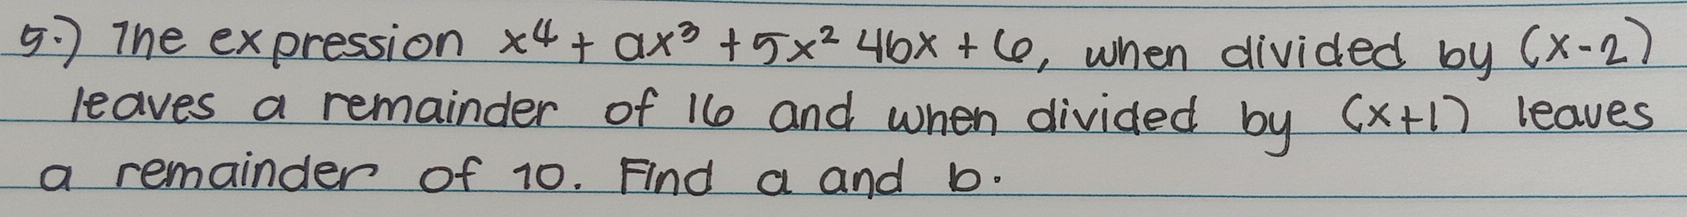 5.) The expression x⁴ + ax³ + 5x² 4bx + 6, when divided by (x-2)
leaves a remainder of 16 and when divided by (x+1) leaves
a remainder of 10. Find a and b.